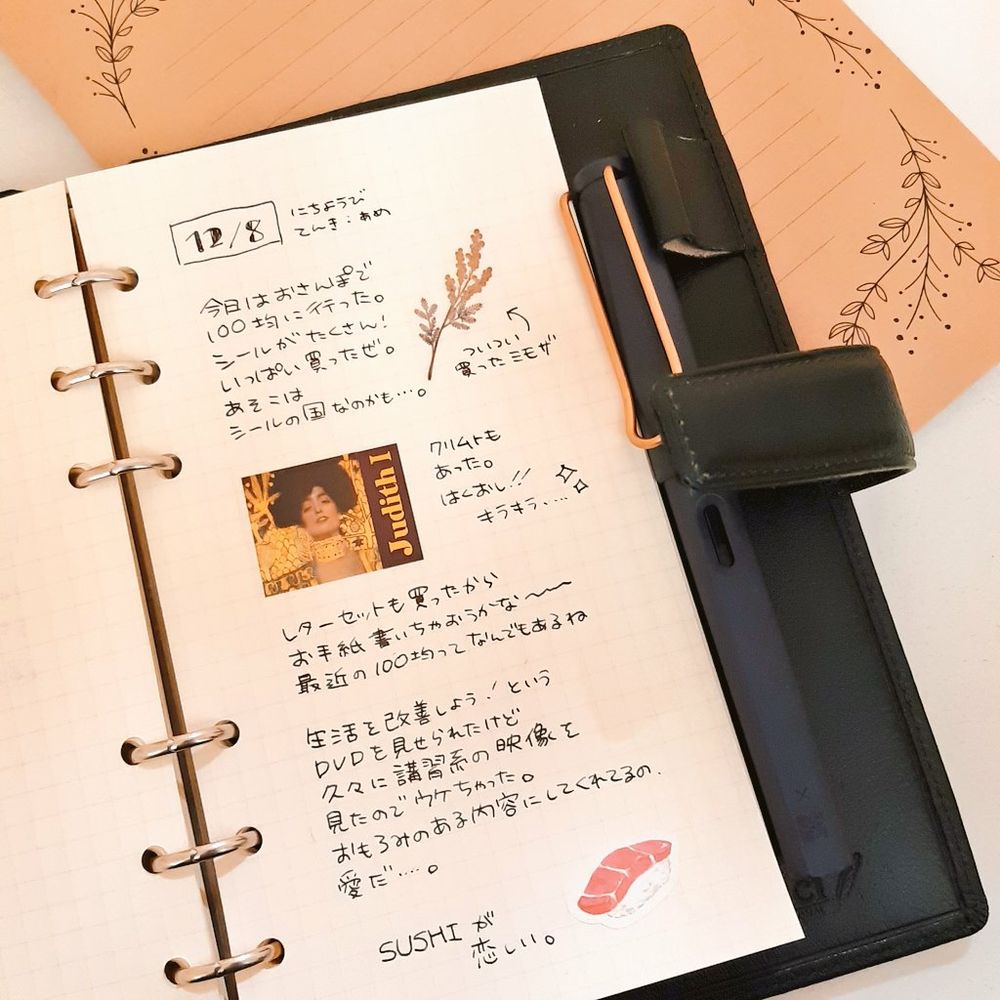 12/8
にちようび
てんき：あめ
今日はおさんぽで
100均に行った。
シールがたくさん！
いっぱい買ったぜ。
あそこは
シールの国なのかも…。
ついつい
買ったミモザ
Judith I
クリムトも
あった。
はくおし!!
キラキラ…
レターセットも買ったから
お手紙書いちゃおうかな〜
最近の100均ってなんでもあるね
生活を改善しよう！という
DVDを見せられたけど
久々に講習系の映像を
見たのでウケちゃった。
おもろみのある内容にしてくれてるの.
愛だ…。
SUSHIが
恋しい。